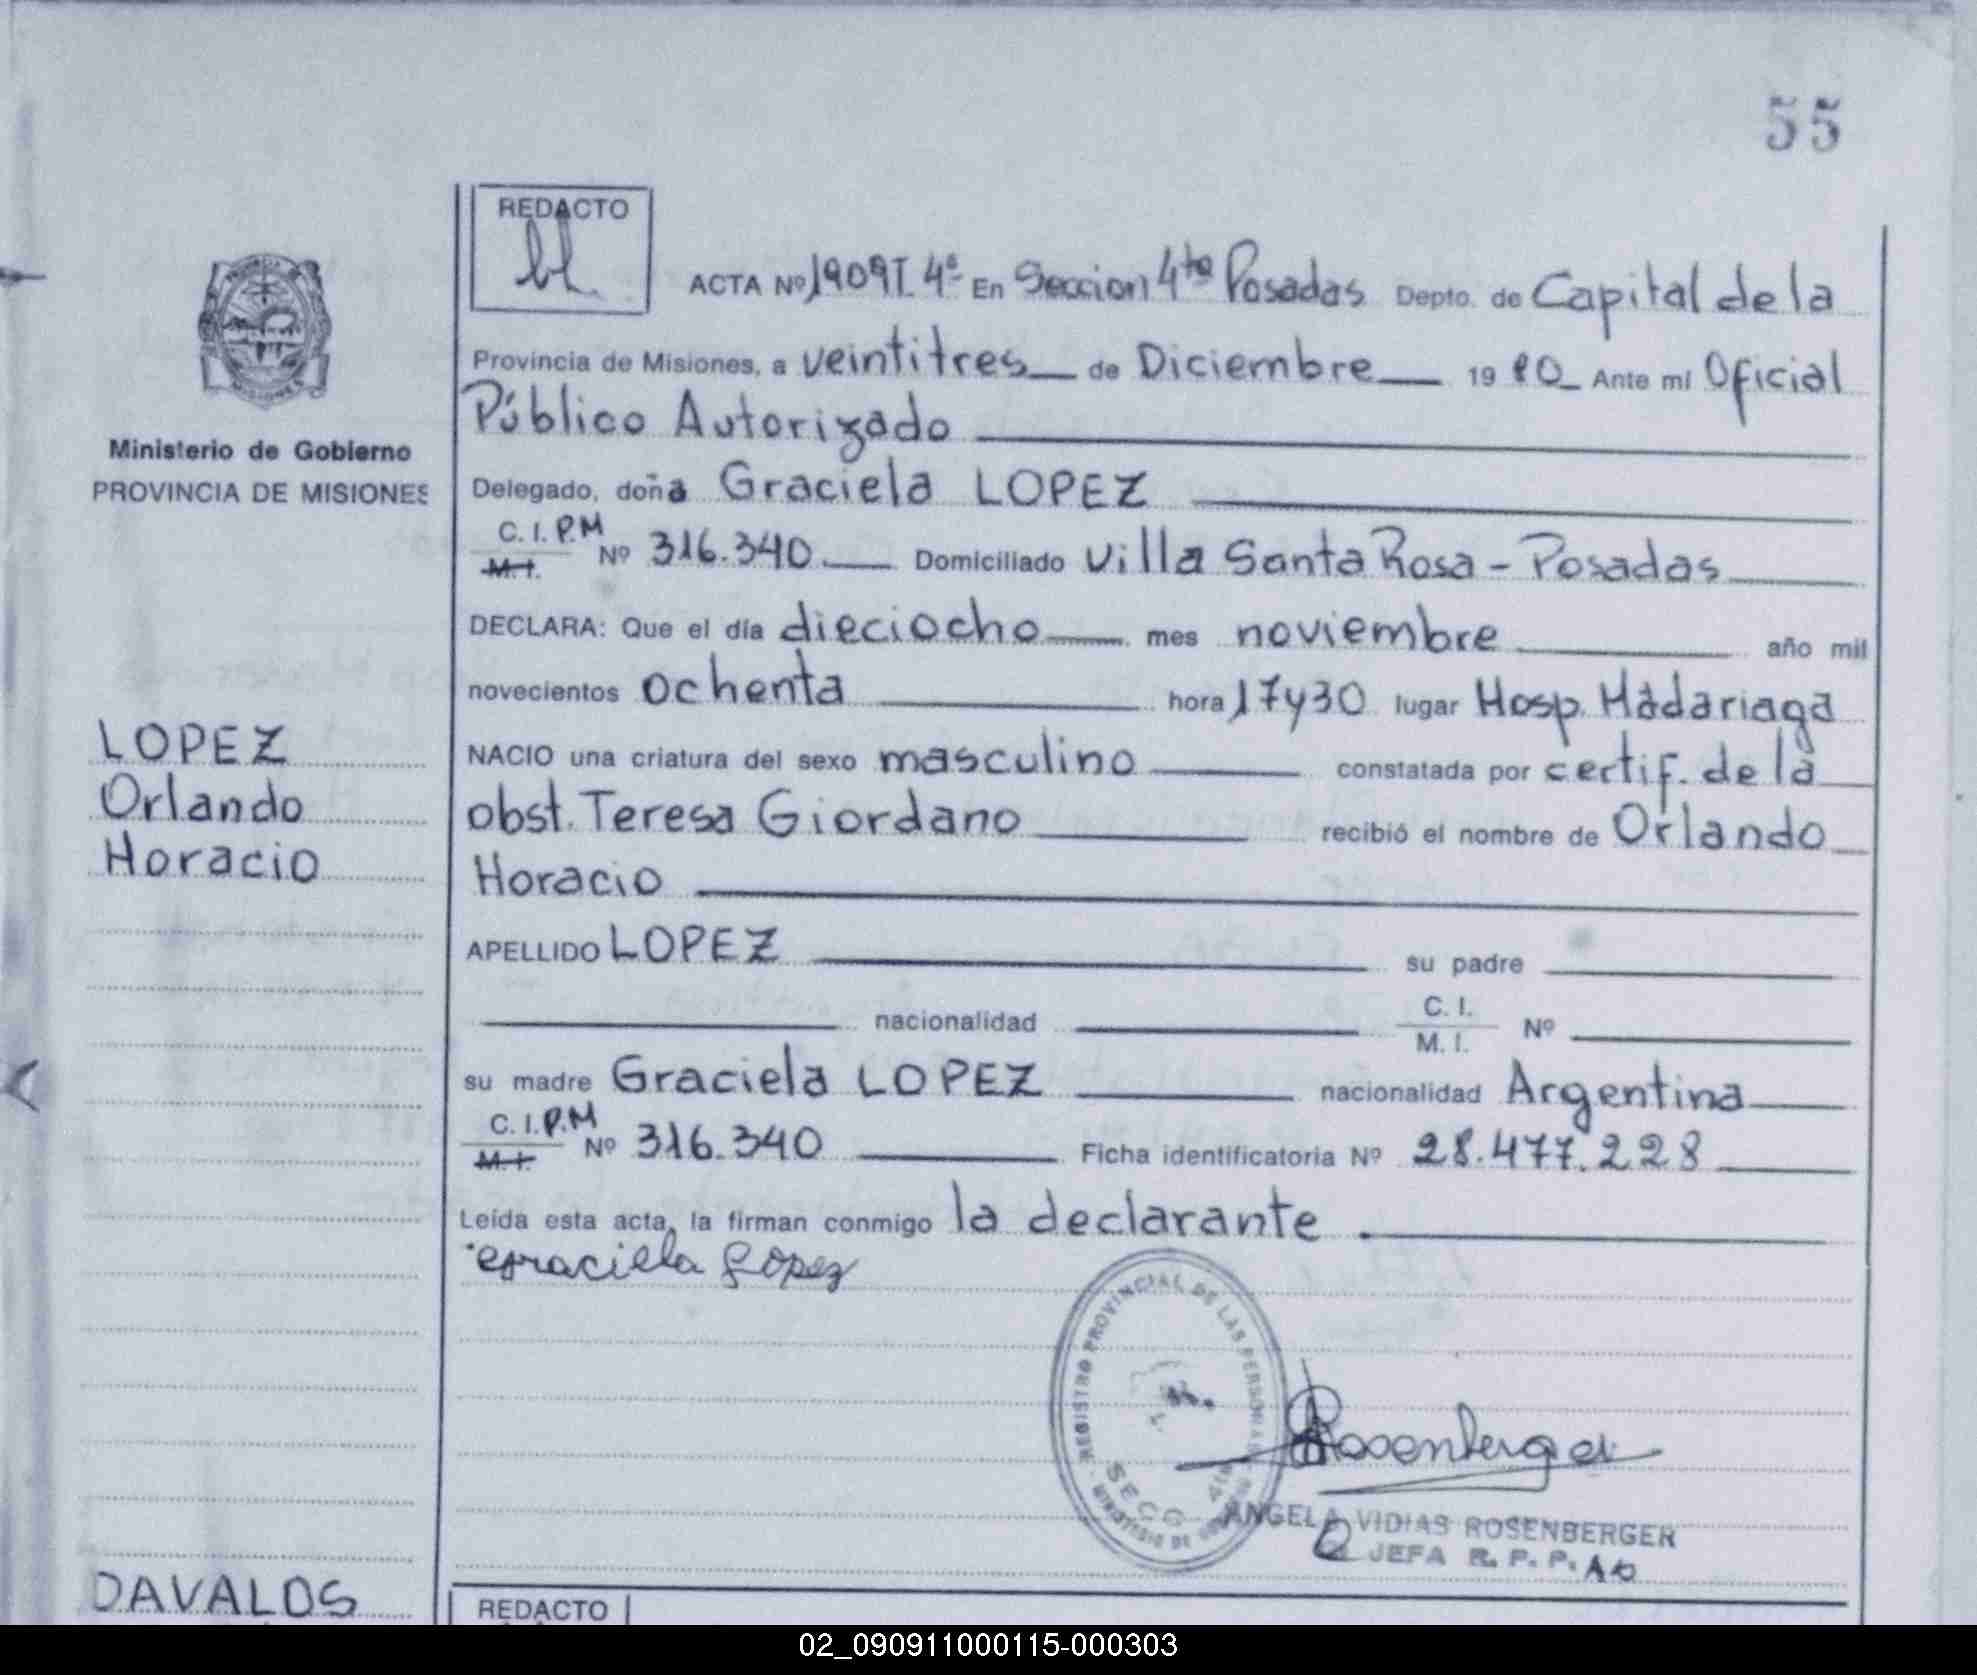 55
REDACTO
ACTA Nº 1909 T. 4º En Seccion 4ta Posadas Depto. de Capital de la
Provincia de Misiones, a veintitres de Diciembre 19 80 Ante mi Oficial
Público Autorizado
Ministerio de Gobierno
PROVINCIA DE MISIONES
Delegado, doña Graciela LOPEZ
C. I. P.M
M. I. Nº 316.340 Domiciliado Villa Santa Rosa - Posadas
DECLARA: Que el día dieciocho mes noviembre año mil
novecientos ochenta hora 17 y 30 lugar Hosp. Madariaga
LOPEZ
Orlando
Horacio
NACIO una criatura del sexo masculino constatada por certif. de la
obst. Teresa Giordano recibió el nombre de Orlando
Horacio
APELLIDO LOPEZ su padre
nacionalidad C. I. Nº
M. I.
su madre Graciela LOPEZ nacionalidad Argentina
C. I. P.M
M. I. Nº 316.340 Ficha identificatoria Nº 28.477.228
Leída esta acta, la firman conmigo la declarante.
Graciela Lopez
REGISTRO PROVINCIAL DE LAS PERSONAS
SECC 4ta
MINISTERIO DE GOBIERNO
Rosenberger
ANGELA VIDIAS ROSENBERGER
JEFA R. P. P.
DAVALOS
REDACTO
02_090911000115-000303